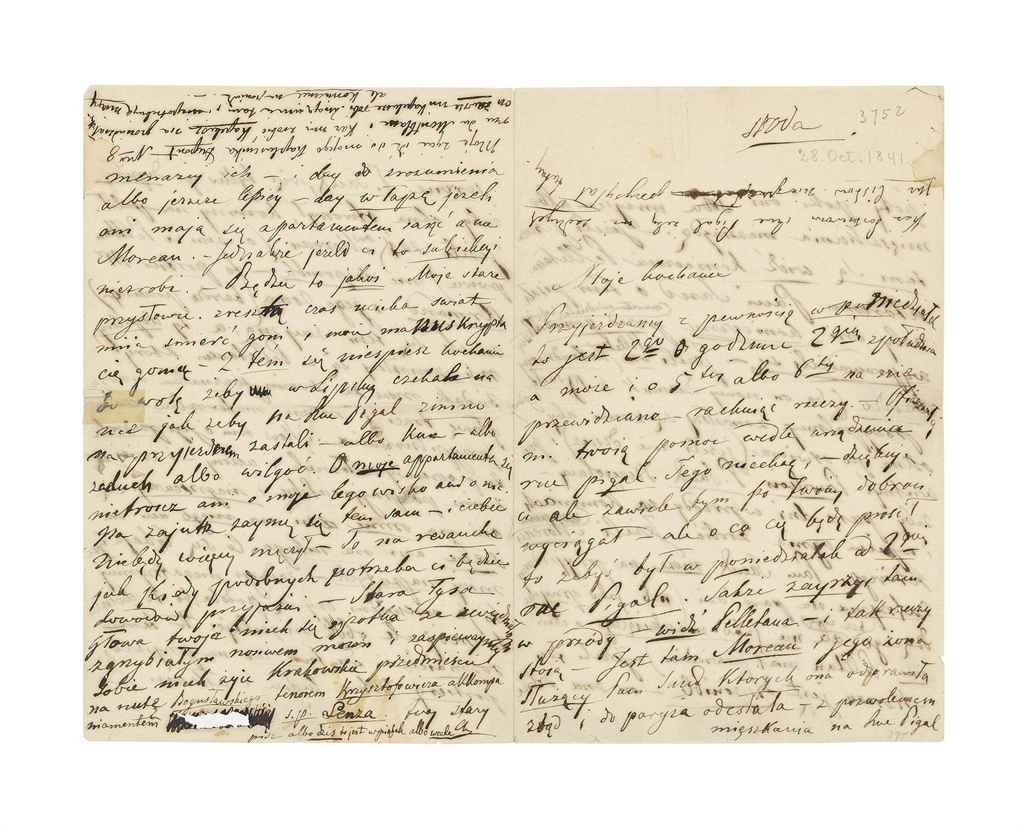 środa
3752
28. Oct. 1841.
Moje kochanie
Przyjeżdzamy z pewnością w poniedziałek
to jest 2go o godzinie 2giej z południa
a może i o 5tej albo 6tej na nie
przewidziano – rachując rzeczy –
mi twoją pomoc wedle urządzenia
rue pigal. Tego niechcę, – dzięku-
ci ale zawiele bym po Twoiey dobroci
wyciągał – ale o co cię będę prosił
to żebyś był w poniedziałek od 2giej
rue Pigal. Także zayrzyj tam
w przódy – widź Pelletana – i jak rzeczy
stoją – Jest tam Moreau i jego żona
służący Pani Sand których ona odprawiła
ztąd i do paryża odesłała – z pozwoleniem
mięszkania na Rue Pigal
menażuj ich – i day do zrozumienia
albo jeszcze lepiey – day w łapę jeżeli
oni mają się apartamentem zająć a nie
Moreau. – Jednakże jeżeli ci to subiekcyi
niezrobi. – Będzie to jakoś Moje stare
przysłowie. zresztą czas ucieka świat
mija śmierć goni, i moie manuskrypta
cię gonią – Z tém się niespiesz kochanie
bo wolę żeby w Lipsku czekali na
niż jak żeby na Rue Pigal zimno
na przyjezdném zastali – albo kurz – albo
zaduch albo wilgoć. O moje appartamenta się
nietroszcz ani o moje legowisko ani o nic
Na zajutrz zaymę się tem sam – i ciebie
niebędę więcey męczył – To na revanche
jak kiedy podobnych potrzeba ci będzie
dowodów przyjaźni – Stara Łysa
głowa twoja niech się spotka ze zwiędłym
zgrzybiałym nosem moim i zaśpiewaymy
sobie niech żyie Krakowskie przedmieście
na nutę Bogusławskiego tenorem Krzysztofowicza akkompa
niamentem s.p. Lenza twoy stary
pisz albo dziś to jest w piątek albo wcale Ch